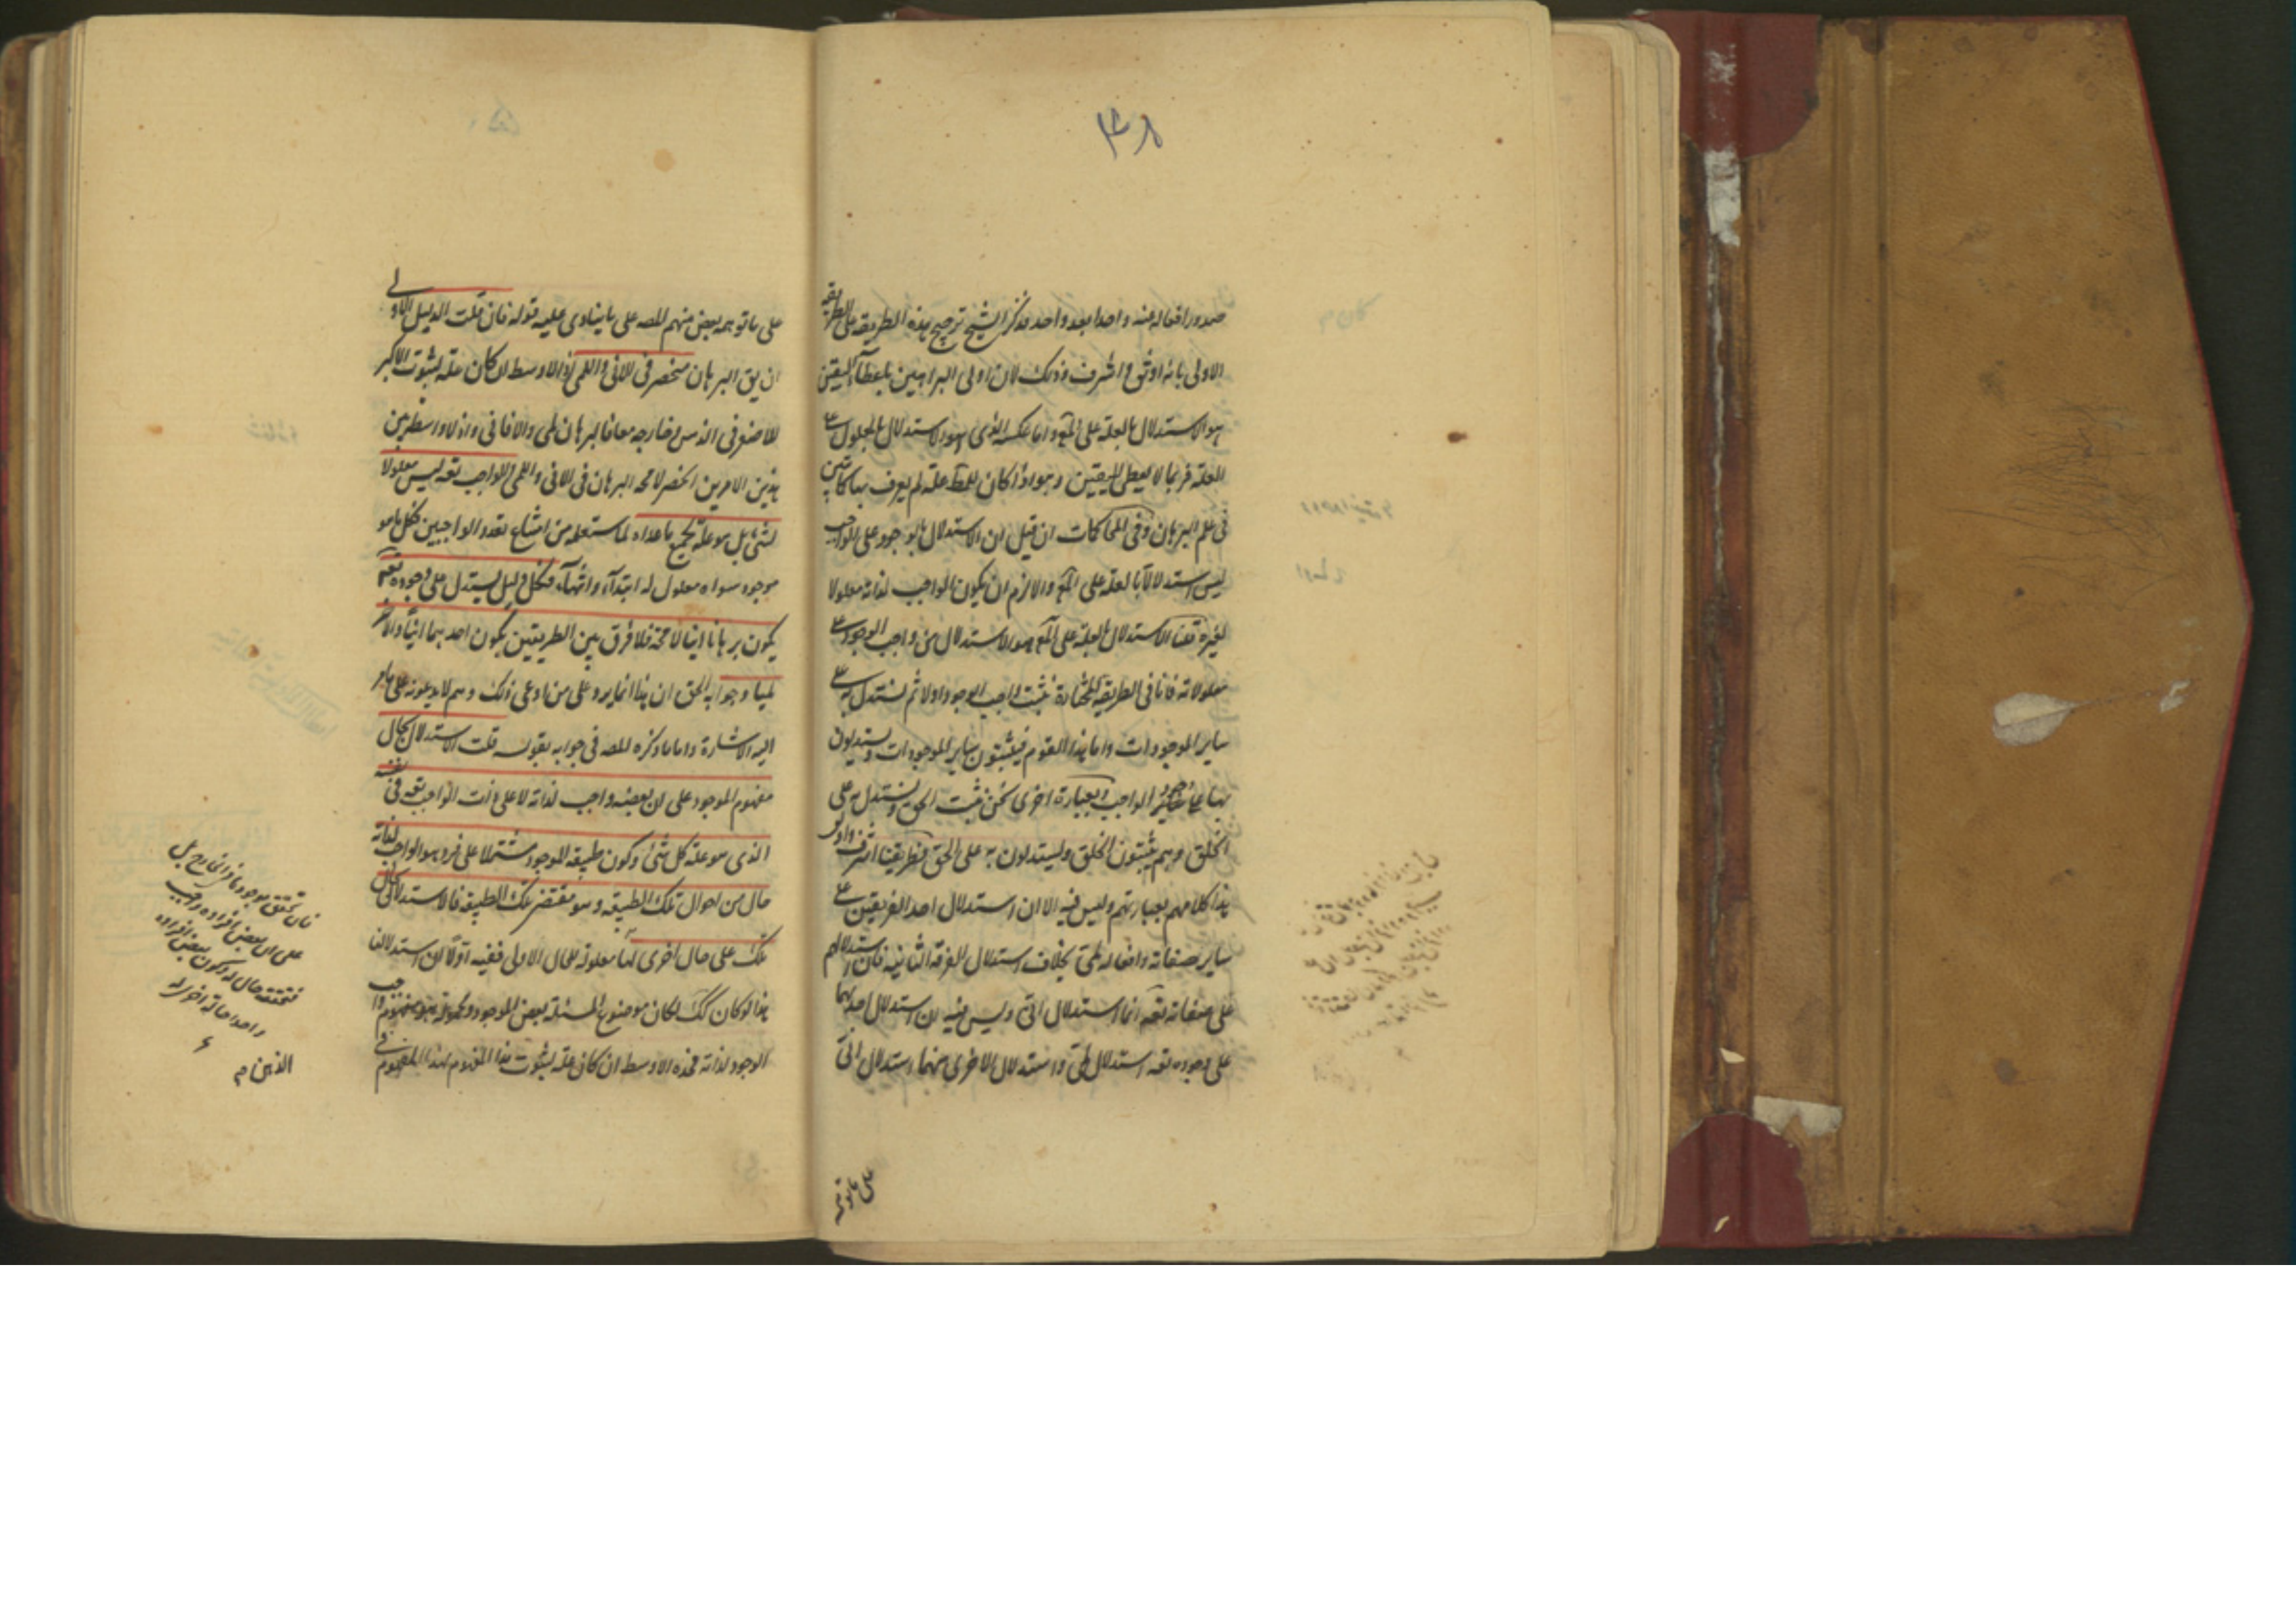 ٣٨
صدور افعاله عنه واحدا بعد واحد فذكر الشيخ ترجيح هذه الطريقه على الطريقه
الاولى بانه اوثق و اشرف وذلك لان اولى البراهين باعطاء اليقين
هو الاستدلال بالعلة على المع واما عكسه الذى هو الاستدلال بالمعلول على
العلة فربما لا يعطى اليقين وهو اذا كان للمط علة لم يعرف بها كما تبين
فى علم البرهان وفى المحاكمات ان قيل ان الاستدلال بالوجود على الواجب
ليس استدلالا بالعلة على المع والا لزم ان يكون الواجب لذاته معلولا
لغيره قلنا الاستدلال بالعلة على المع هو الاستدلال من واجب الوجود على
معلولاته فانا فى الطريقة المختارة نثبت واجب الوجود اولا ثم نستدل به على
ساير الموجودات واما هذا القوم فيثبتون ساير الموجودات ويستدلون
بها على الواجب وبعبارة اخرى نحن نثبت الحق ونستدل به على
الخلق وهم يثبتون الخلق ويستدلون به على الحق فطريقنا اشرف واوثق
هذا كلامهم بعبارتهم وليس فيه الا ان استدلال احد الفريقين على
ساير صفاته وافعاله لمى بخلاف استدلال الفرقة الثانية فان استدلالهم
على صفاته تعه انما استدلال انى وليس فيه ان استدلال احدهما
على وجوده تعه استدلال لمى واستدلال الاخرى منهما استدلال انى
على ما توهمه
على ما توهمه بعض منهم المصه على ما ينادى عليه قوله فان قلت الدليل الاولى
ان يق البرهان منحصر فى الانى واللمى اذ الاوسط ان كان علة لثبوت الاكبر
للاصغر فى الذهن وخارجه معا فالبرهان لمى والا فانى واذ لا واسطة بين
هذين الامرين انحصر لا محه البرهان فى الانى واللمى والواجب تعه ليس معلولا
لشئ بل هو علة لجميع ما عداه لما ستعلمه من امتناع تعدد الواجبين فكل ما هو
موجود سواه معلول له ابتداء وانتهاء فكل دليل يستدل على وجوده تعه
يكون برهانا انيا لا محة فلا فرق بين الطريقين بكون احدهما انيا والاخر
لميا وجوابه الحق ان هذا انما يرد على من ادعى ذلك وهم لا يدعونه على ما مر
اليه الاشارة واما ما ذكره المصه فى جوابه بقوله قلت الاستدلال بحال
مفهوم الموجود على ان بعضه واجب لذاته لا على ذات الواجب تعه فى نفسه
الذى هو علة كل شئ وكون طبيعة الموجود مشتملا على فرد هو الواجب لذاته
حال من احوال تلك الطبيعة وهو مقتضى تلك الطبيعة فالاستدلال بحال
تلك على حال اخرى لها معلولة للحال الاولى ففيه اولا ان استدلالنا
هذا لو كان كك لكان موضوع المسئلة بعض الموجود ومحموله هو مفهوم واجب
الوجود لذاته فهذه الاوسط ان كان علة لثبوت هذا المفهوم لهذا المفهوم فى
على ان بعض افراده واجب
واحدا حالة اخرى له
الذهن م